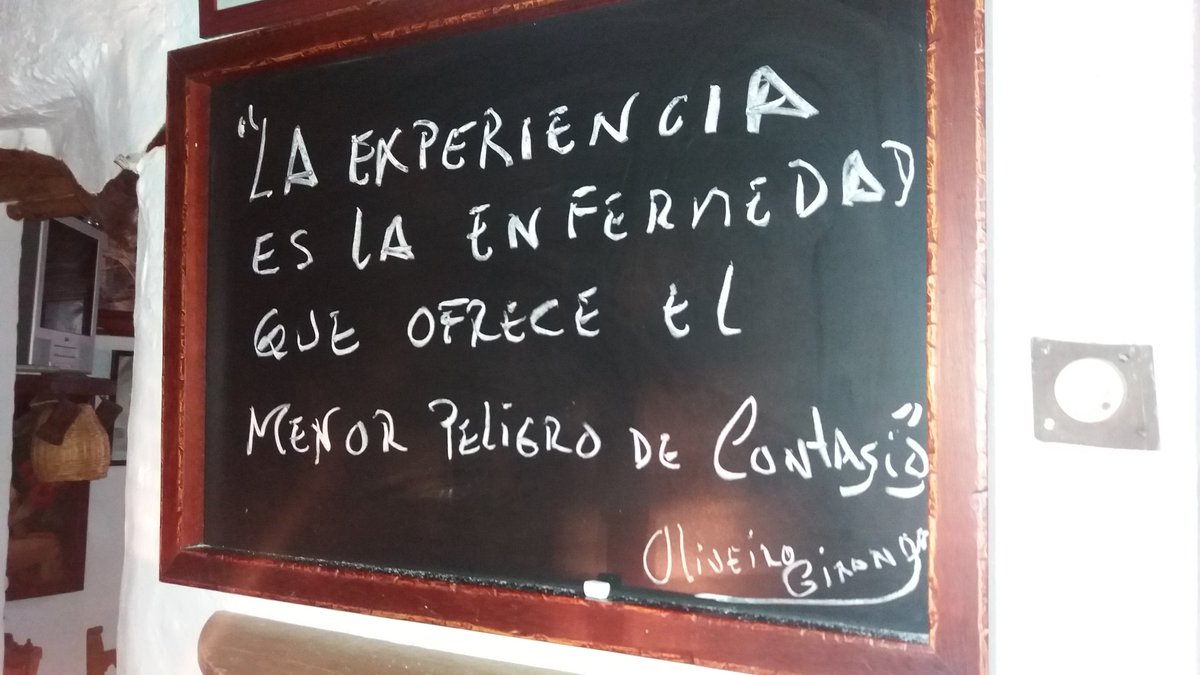 "LA EXPERIENCIA
ES LA ENFERMEDAD
QUE OFRECE EL
MENOR PELIGRO DE CONTAGIO"
Oliveiro Girondo